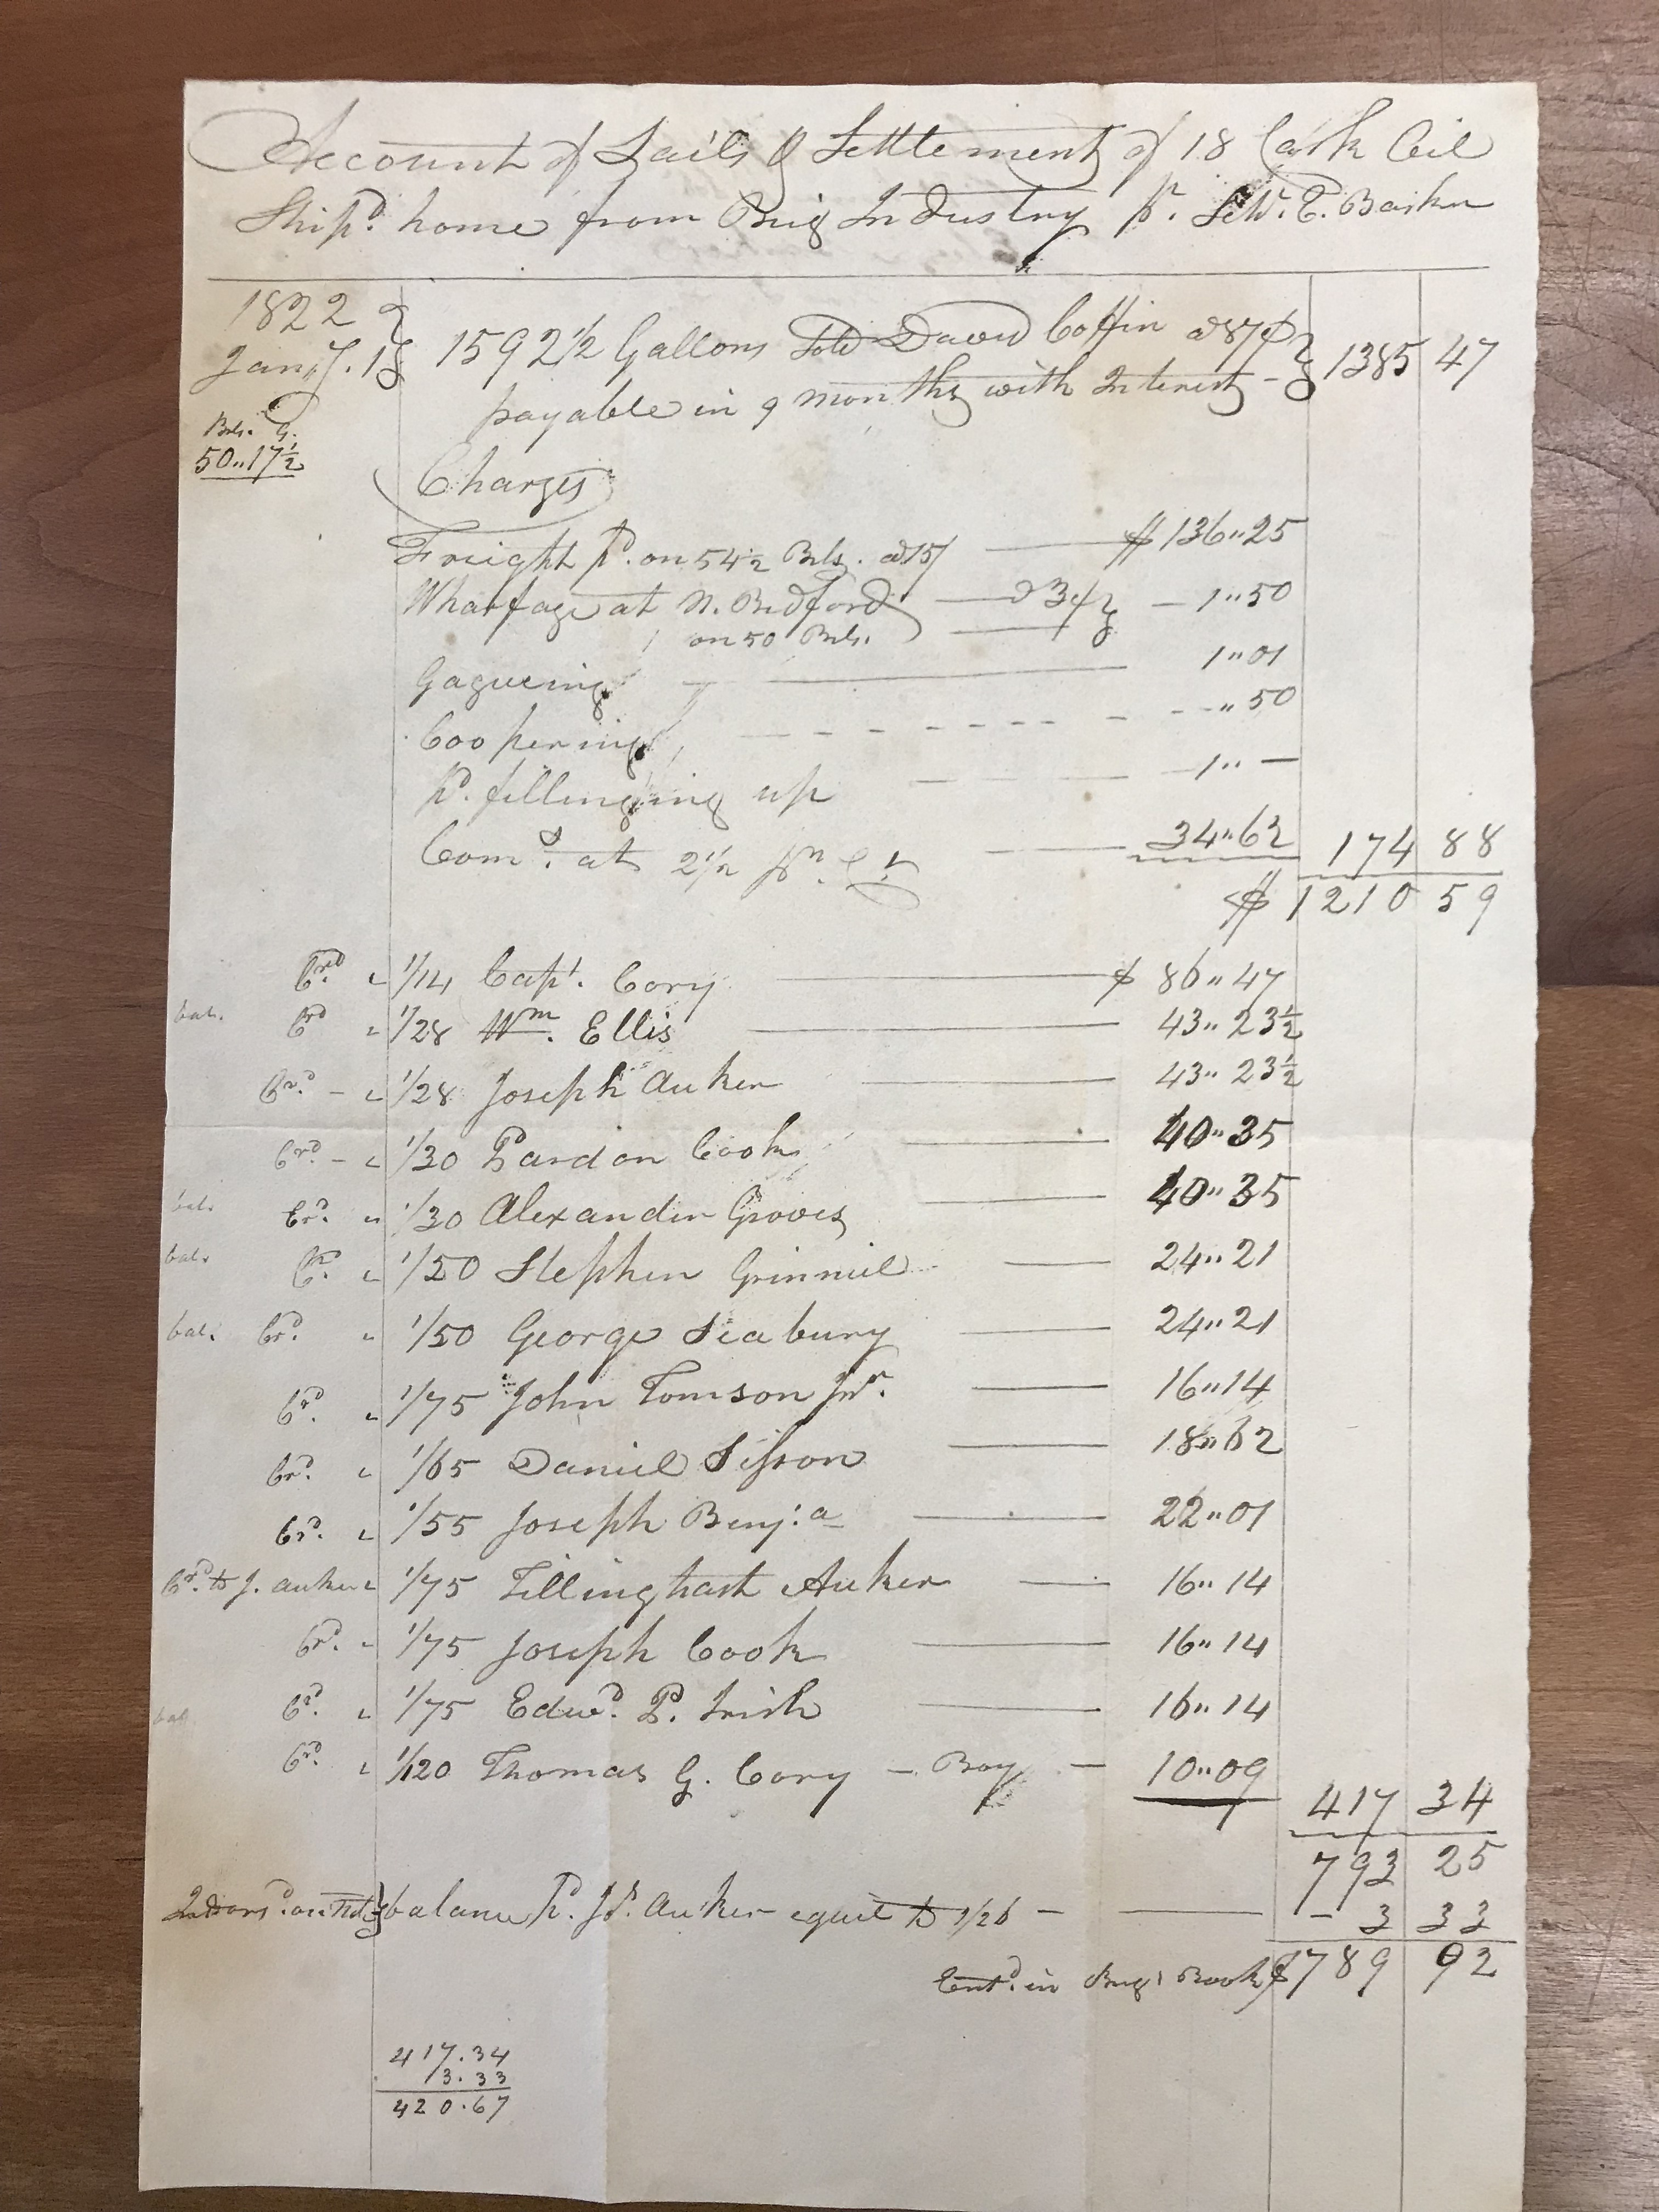 Account of Sails & Settlement of 18 Cask Oil
Ship.d home from Brig Industry p.r E. Barker
1822
Jany. 15
1592½ Gallons Sold David Coffin a 87¢
payable in 9 months with Interest - 1385 47
Brls. G.
50..17½
Charges
Freight P.d on 54½ Brls. a 15/ $ 136..25
Wharfage at N. Bedford a 3¢ - 1..50
on 50 Brls.
Gagueing 1..01
Coopering, - - - - - - - - .. 50
P.d fillinging up 1.. -
Com.s at 2½ pr. Ct. 34..62 174 88
$ 1210 59
Crd " 1/14 Capt. Cory $ 86..47
bal. Crd " 1/28 Wm. Ellis 43..23½
Crd - " 1/28 Joseph Auker 43..23½
Crd - " 1/30 Pardon Cook 40..35
bal. Crd " 1/30 Alexander Groves 40..35
bal. Cr. " 1/50 Stephen Grinniel 24..21
bal. Crd " 1/50 George Seabury 24..21
Crd " 1/75 John Tomson Jnr. 16..14
Crd " 1/65 Daniel Sisson 18..62
Crd " 1/55 Joseph Benj:a 22..01
Crd to J. auker " 1/75 Tillinghast Auker 16..14
Crd " 1/75 Joseph Cook 16..14
bal Crd " 1/75 Edwd. P. Irish 16..14
Crd " 1/120 Thomas G. Cory - Boy - 10..09
417 34
793 25
balance P.d Js. Auker equil to 1/26 - - 3 33
Entd. in Brigs Book $789 92
417.34
3.33
420.67